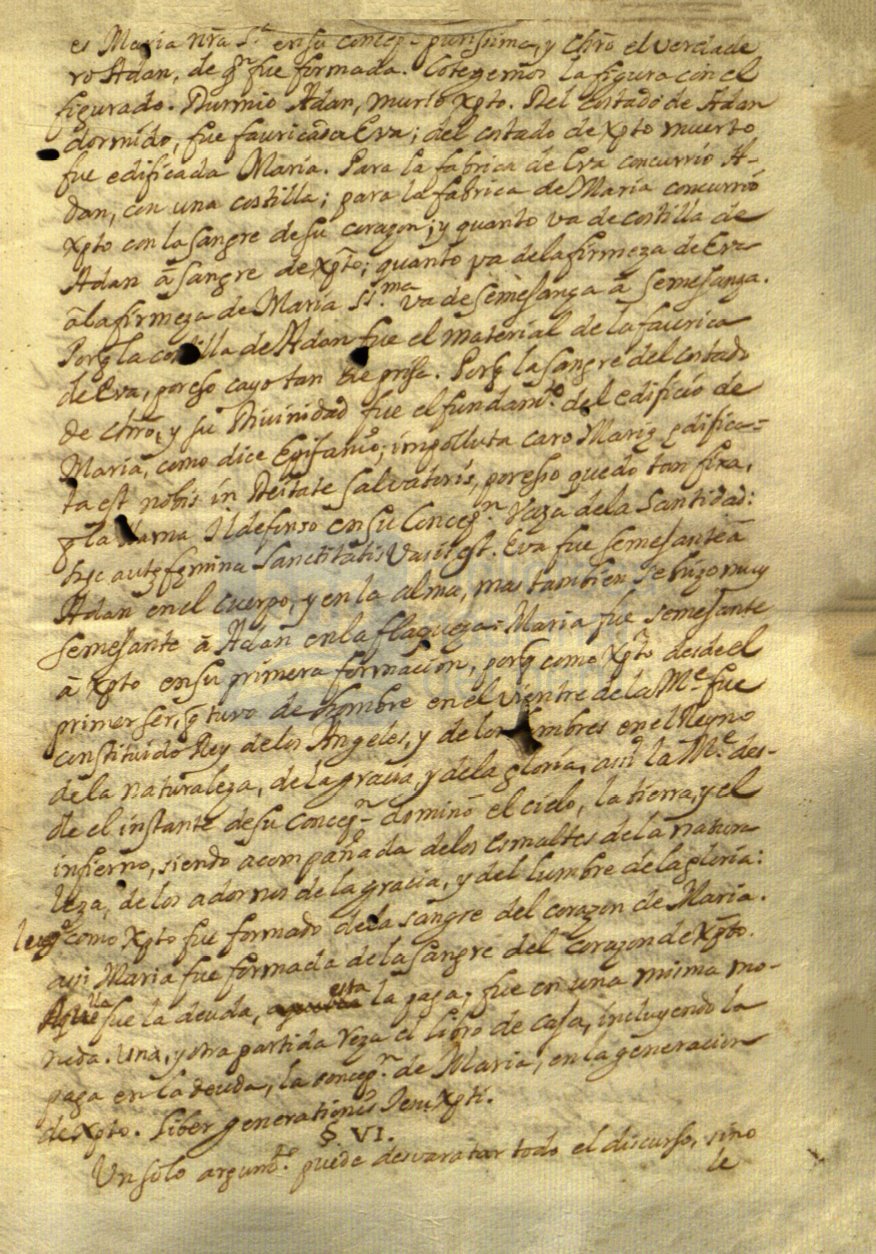 es Maria nrã S.ª en su concep.ⁿ purissima, y Chrõ el verdade
ro Adan, de qⁿ fue formada. Cotegemos la figura con el
figurado. Durmio Adan, murio Xpto. Del costado de Adan
dormido, fue fauricada Eva; del costado de Xpto muerto
fue edificada Maria. Para la fabrica de Eva concurrio A-
dan, con una costilla; para la fabrica de Maria concurrió
Xpto con la sangre de su corazon; y quanto va de costilla de
Adan â sangre de Xpto; quanto va de la firmeza de Eva
â la firmeza de Maria SS.ma va de semejança a semejanza.
Porq̃ la costilla de Adan fue el material de la faurica
de Eva, por eso cayo tan de prisa. Porq̃ la sangre del costado
de Chrõ, y su Divinidad fue el fundam.to del edificio de
Maria, como dice Epifanio; impolluta caro Mariȩ ȩdifica=
ta est nobis in Deitate Salvatoris, por esso quedo tan fixa,
q̃ la llama Ildefonso en su Concep.ⁿ Vaza de la Santidad:
hȩc autȩ fȩmina Sanctitatis Vasis est. Eva fue semejante â
Adan en el cuerpo, y en la alma, mas tambien se hizo muy
semejante â Adan en la flaqueza: Maria fue semejante
â Xpto en su primera formacion, porq̃ como Xpto desde el
primer ser, q̃ tuvo de hombre en el vientre de la M.e fue
constituido Rey de los Angeles, y de los hombres en el Reyno
de la naturaleza, de la gracia, y de la gloria, asi la M.e des-
de el instante de su concep.ⁿ dominò el cielo, la tierra, y el
infierno, siendo acompañada de los esmaltes de la natura
leza, de los adornos de la gracia, y del lumbre de la gloria:
luego como Xpto fue formado de la sangre del corazon de Maria.
asi Maria fue formada de la sangre del corazon de Xpto.
Aquella fue la deuda, esta la paga; fue en una misma mo-
neda. Una, y otra partida reza el libro de casa, incluyendo la
paga en la deuda, la concep.ⁿ de Maria, en la generacion
de Xpto. Liber generationis Jesu Xpti.
§. VI.
Un solo argum.to puede desvaratar todo el discurso, sino
le